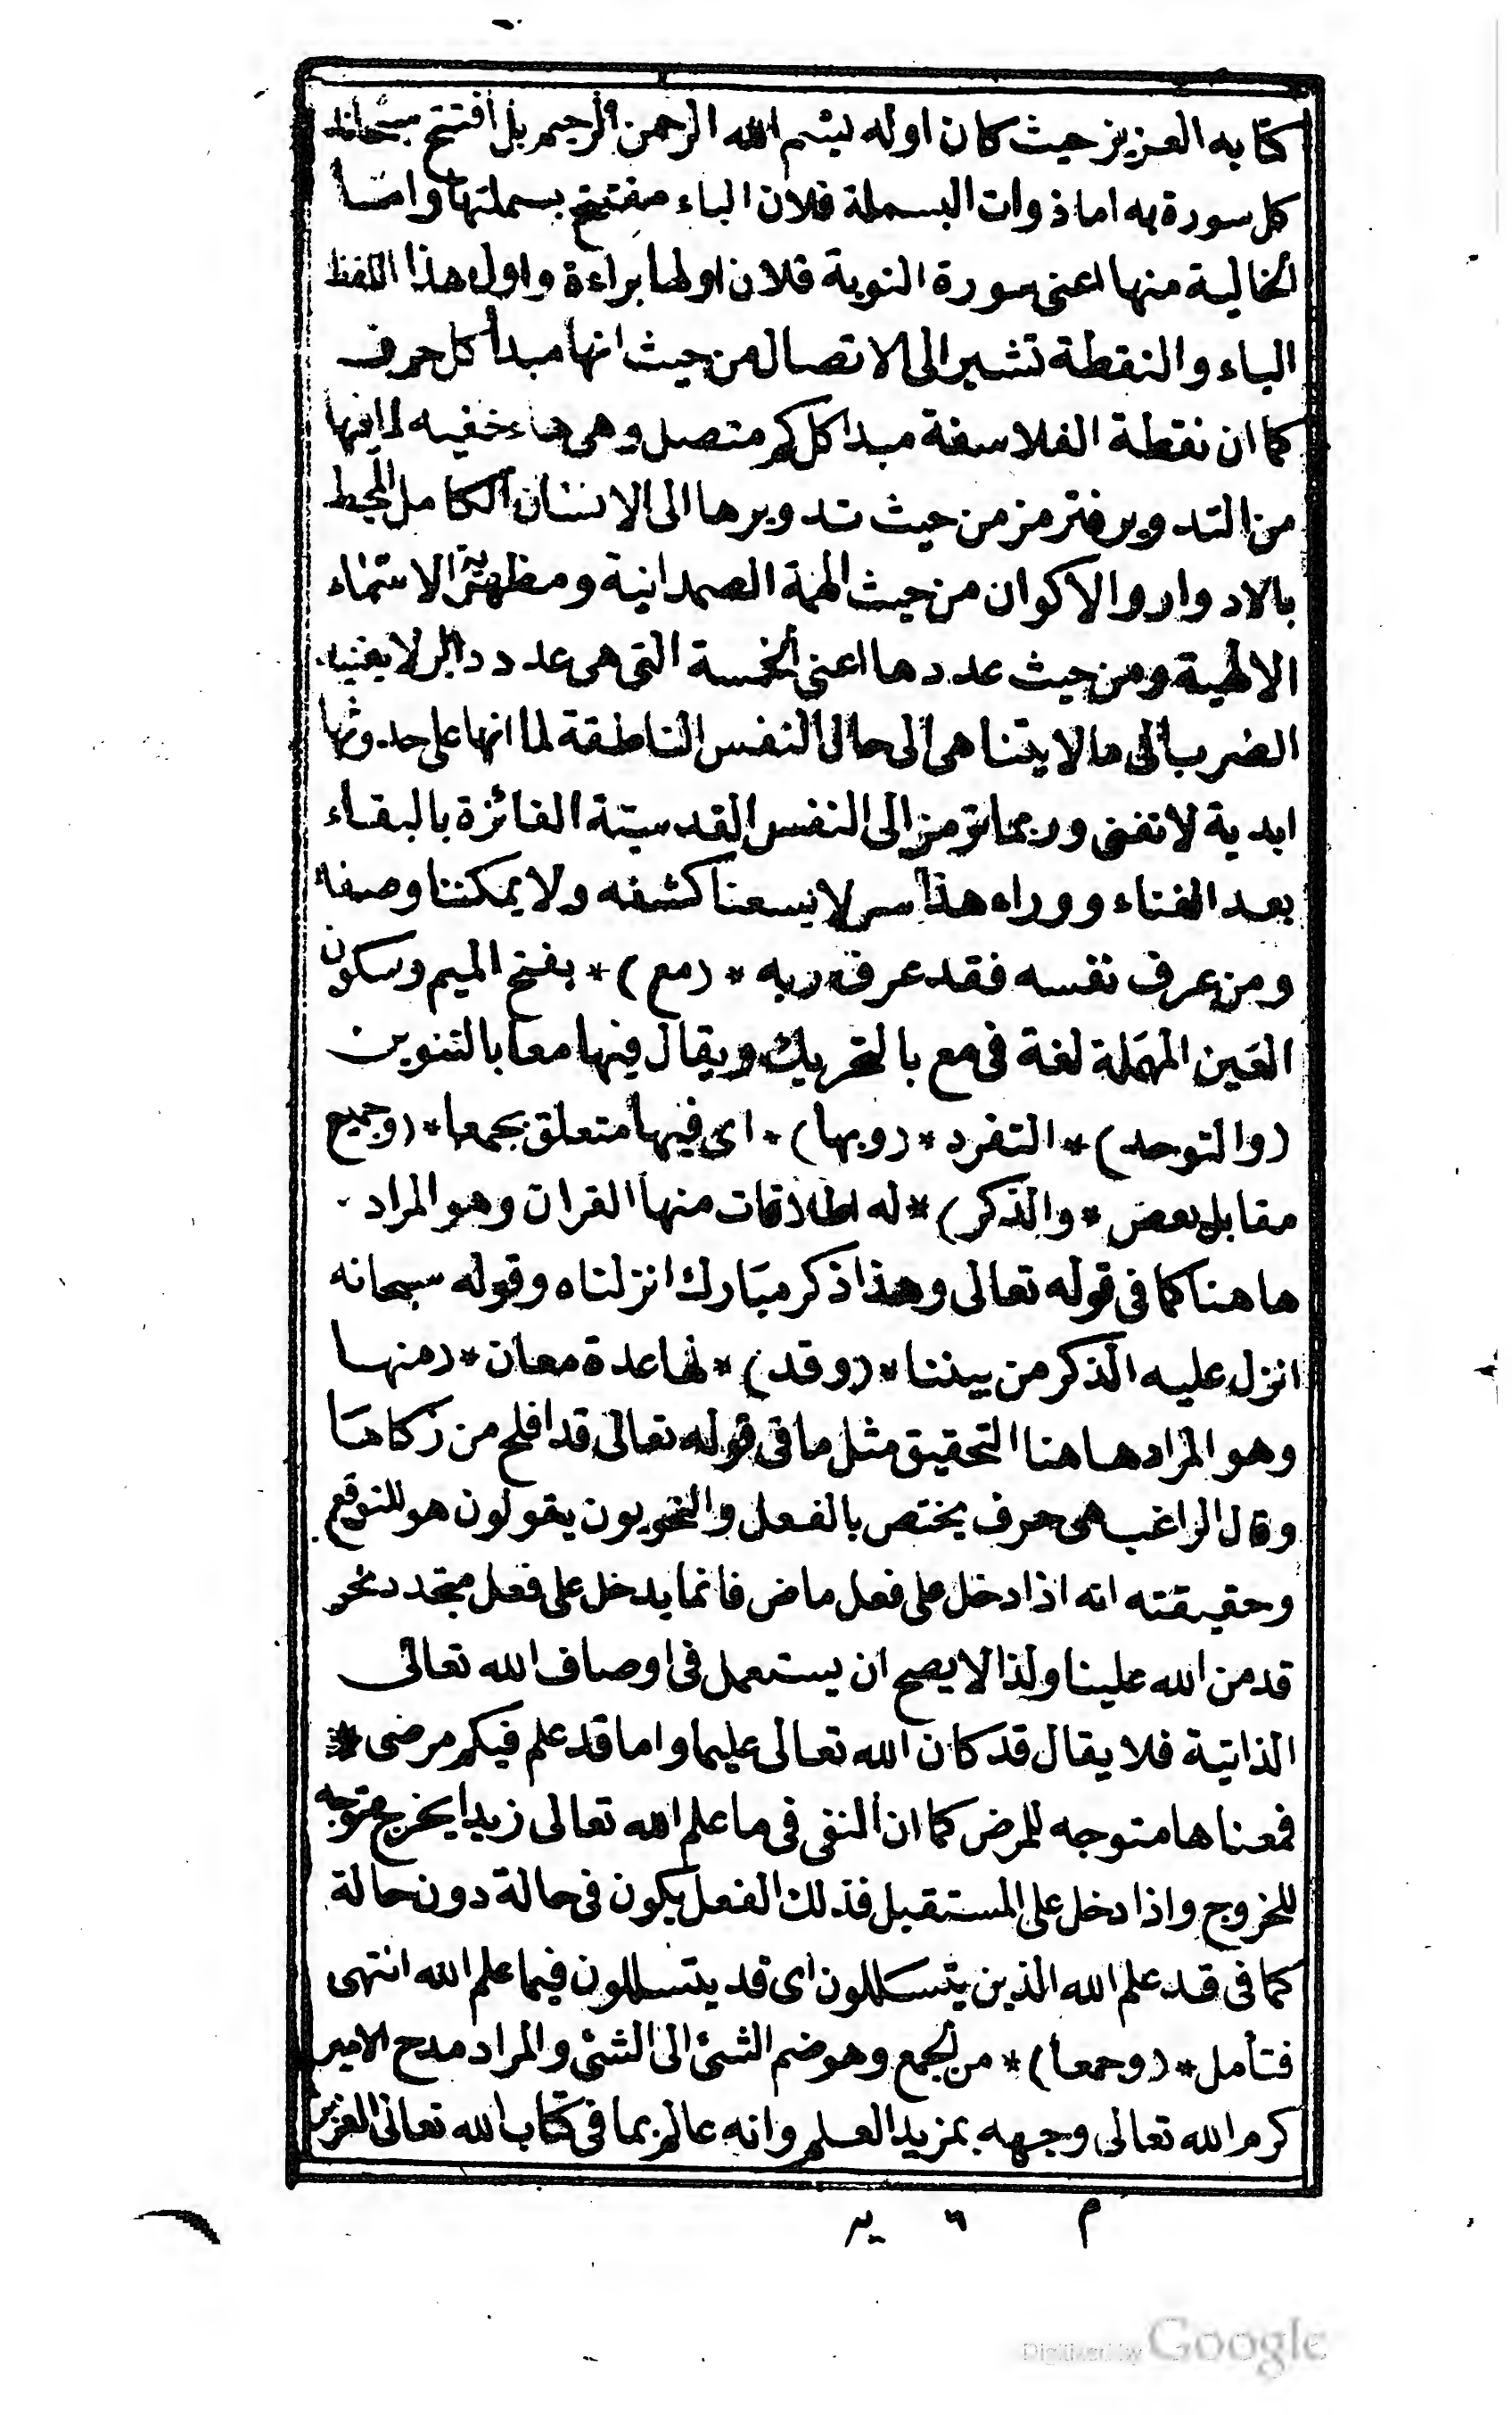 كتابه العزيز حيث كان اوله بسم الله الرحمن الرحيم بل افتتح سبحانه
كل سورة به اما ذوات البسملة فلان الباء مفتتح بسملتها واما
الخالية منها اعنى سورة التوبة فلان اولها براءة واول هذا اللفظ
الباء والنقطة تشير الى الاتصال من حيث انها مبدأ كل حرف
كما ان نقطة الفلاسفة مبدا كل كم متصل وهى هاء خفيه لما فيها
من التدوير فترمز من حيث تدويرها الى الانسان الكامل المحيط
بالادوار والاكوان من حيث الهمة الصمدانية ومظهرية الاسماء
الالهية ومن حيث عددها اعنى الخمسة التى هى عدد دائر لا يفنيه
الضرب الى ما لا يتناهى الى حال النفس الناطقة لما انها على حدوثها
ابدية لا تفنى وربما ترمز الى النفس القدسية الفائزة بالبقاء
بعد الفناء ووراء هذا سر لا يسعنا كشفه ولا يمكننا وصفه
ومن عرف نفسه فقد عرف ربه * (مع) * بفتح الميم وسكون
العين المهملة لغة فى مع بالتحريك ويقال فيها معا بالتنوين
(والتوحد) * التفرد * (وبها) * اى فيها متعلق بجمعا * (وجميع
مقابل بعض * والذكر) * له اطلاقات منها القران وهو المراد
هاهنا كما فى قوله تعالى وهذا ذكر مبارك انزلناه وقوله سبحانه
انزل عليه الذكر من بيننا * (وقد) * لها عدة معان * (منها
وهو المراد هاهنا التحقيق مثل ما فى قوله تعالى قد افلح من زكاها
وقال الراغب هى حرف يختص بالفعل والنحويون يقولون هو للتوقع
وحقيقته انه اذا دخل على فعل ماض فانما يدخل على فعل متجدد نحو
قد من الله علينا ولذا لا يصح ان يستعمل فى اوصاف الله تعالى
الذاتية فلا يقال قد كان الله تعالى عليما واما قد علم فيكم مرضى *
فمعناها متوجه للمرض كما ان النفى فى ما علم الله تعالى زيدا يخرج متوجه
للخروج واذا دخل على المستقبل فذلك الفعل يكون فى حالة دون حالة
كما فى قد علم الله الذين يتسللون اى قد يتسللون فيما علم الله انتهى
فتأمل * (وجمعا) * من الجمع وهو ضم الشئ الى الشئ والمراد مدح الامير
كرم الله تعالى وجهه بمزيد العلم وانه عالم بما فى كتاب الله تعالى العزيز
م ٦ ير
Digitized by Google